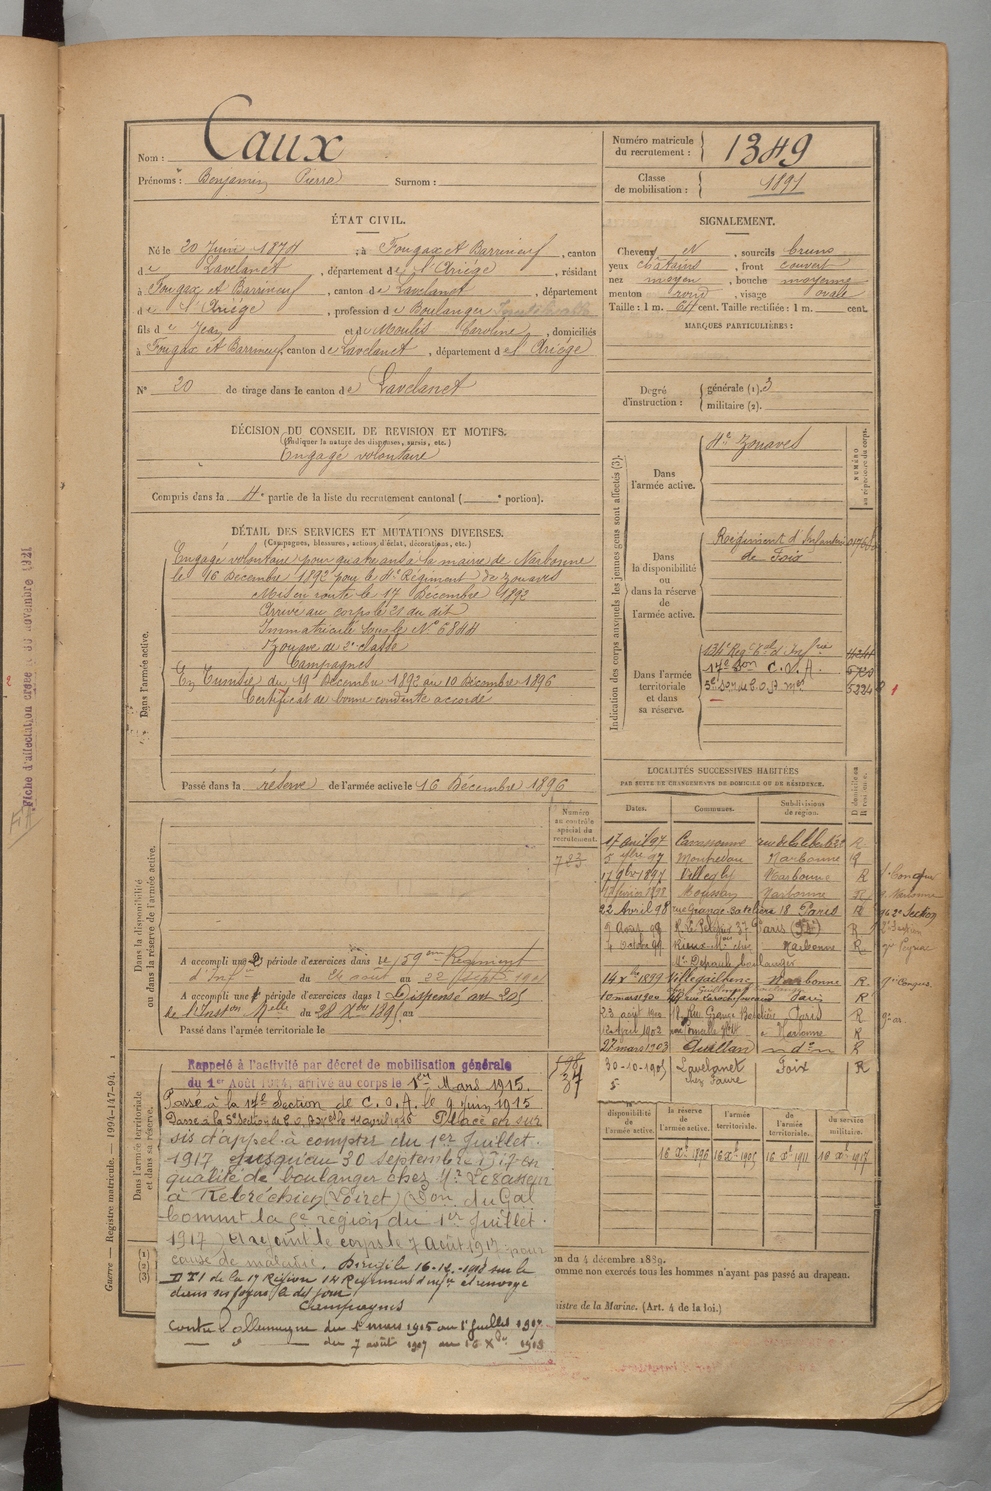 Nom : Caux
Prénoms : Benjamin Pierre Surnom :
Numéro matricule du recrutement : 1349
Classe de mobilisation : 1891
ÉTAT CIVIL.
Né le 20 Juin 1874, à Fougax et Barrineuf, canton
de Lavelanet, département de l'Ariége, résidant
à Fougax et Barrineuf, canton de Lavelanet, département
de l'Ariége, profession de Boulanger
fils de Jean et de Moulis Caroline, domiciliés
à Fougax et Barrineuf, canton de Lavelanet, département de l'Ariége
N° 20 de tirage dans le canton de Lavelanet
SIGNALEMENT.
Cheveux N, sourcils bruns
yeux châtains, front couvert
nez moyen, bouche moyenne
menton rond, visage ovale
Taille : 1 m. 64 cent. Taille rectifiée : 1 m. cent.
MARQUES PARTICULIÈRES :
Degré d'instruction : générale (1). 3
militaire (2).
DÉCISION DU CONSEIL DE REVISION ET MOTIFS.
(Indiquer la nature des dispenses, sursis, etc.)
Engagé volontaire
Compris dans la 4e partie de la liste du recrutement cantonal ( e portion).
DÉTAIL DES SERVICES ET MUTATIONS DIVERSES.
(Campagnes, blessures, actions d'éclat, décorations, etc.)
Dans l'armée active.
Engagé volontaire pour quatre ans à la mairie de Narbonne
le 16 Décembre 1892 pour le 4e Régiment de Zouaves
Mis en route le 17 Décembre 1892
Arrivé au corps le 21 du dit
Immatriculé sous le N° 5844
Zouave de 2e classe
Campagnes
En Tunisie du 19 Décembre 1892 au 10 Décembre 1896
Certificat de bonne conduite accordé
Passé dans la réserve de l'armée active le 16 Décembre 1896
Indication des corps auxquels les jeunes gens sont affectés (3).
NUMÉRO au répertoire du corps.
Dans l'armée active.
4e Zouaves
Dans la disponibilité ou dans la réserve de l'armée active.
Régiment d'Infanterie
de Foix
Dans l'armée territoriale et dans sa réserve.
134e Reg t al d'Infrie
17e Son C. O. A.
5224
LOCALITÉS SUCCESSIVES HABITÉES
PAR SUITE DE CHANGEMENTS DE DOMICILE OU DE RÉSIDENCE.
Dates. Communes. Subdivisions de région.
17 avril 97 Carcassonne rue de la liberté R
5 7bre 97 Narbonne R
17 9bre 1897 Narbonne R
Moussan Narbonne
22 Avril 98 rue Grange Batelière 18 Paris R
9 Août 99 37 Paris R
Narbonne R
boulanger
14 Xbre 1899 Villegailhenc Narbonne R
10 mars 1900 rue Larochefoucaud Paris R
23 août 1900 18 Rue Grange Batelière Paris R
1902 Narbonne R
27 mars 1903 Quillan R
30-10-1905 Lavelanet Foix R
chez Faure
Numéro au contrôle spécial du recrutement.
Dans la disponibilité ou dans la réserve de l'armée active.
A accompli une 2e période d'exercices dans le 159ème Régiment
d'Inf du 24 août au 22 Sept 1901
A accompli une 1e période d'exercices dans l Dispensé art 205
de l'Inston Melle du 28 Xbre 1895 au
Passé dans l'armée territoriale le
Dans l'armée territoriale et dans sa réserve.
Rappelé à l'activité par décret de mobilisation générale
du 1er Août 1914, arrivé au corps le 1er Mars 1915.
Passé à la 17e Section de C.O.A. le 9 juin 1915
Placé en sur
sis d'appel à compter du 1er Juillet
1917 jusqu'au 30 septembre 1917 en
qualité de boulanger chez Mr Lesaneur
à Rebréchien (Loiret) (Son du Gal
Commt la 5e région du 1er Juillet
1917) et rejoint le corps le 7 Août 1917 pour
cause de maladie. Dirigé le 16-12-1918 sur le
D I de la 17 Région 14 Régiment d'infie et renvoyé
dans ses foyers le dit jour
Campagnes
Contre l'allemagne du 1er mars 1915 au 1er Juillet 1917.
du 7 août 1917 au 16 Xbre 1918
disponibilité de l'armée active. la réserve de l'armée active. l'armée territoriale. de l'armée territoriale. du service militaire.
16 Xe 1896 16 Xe 1905 16 Xe 1911 10 Xe 1917
on du 4 décembre 1889.
omme non exercés tous les hommes n'ayant pas passé au drapeau.
nistre de la Marine. (Art. 4 de la loi.)
Guerre — Registre matricule. — 1994-147-94.
Fiche d'affectation créée le 30 novembre 1921